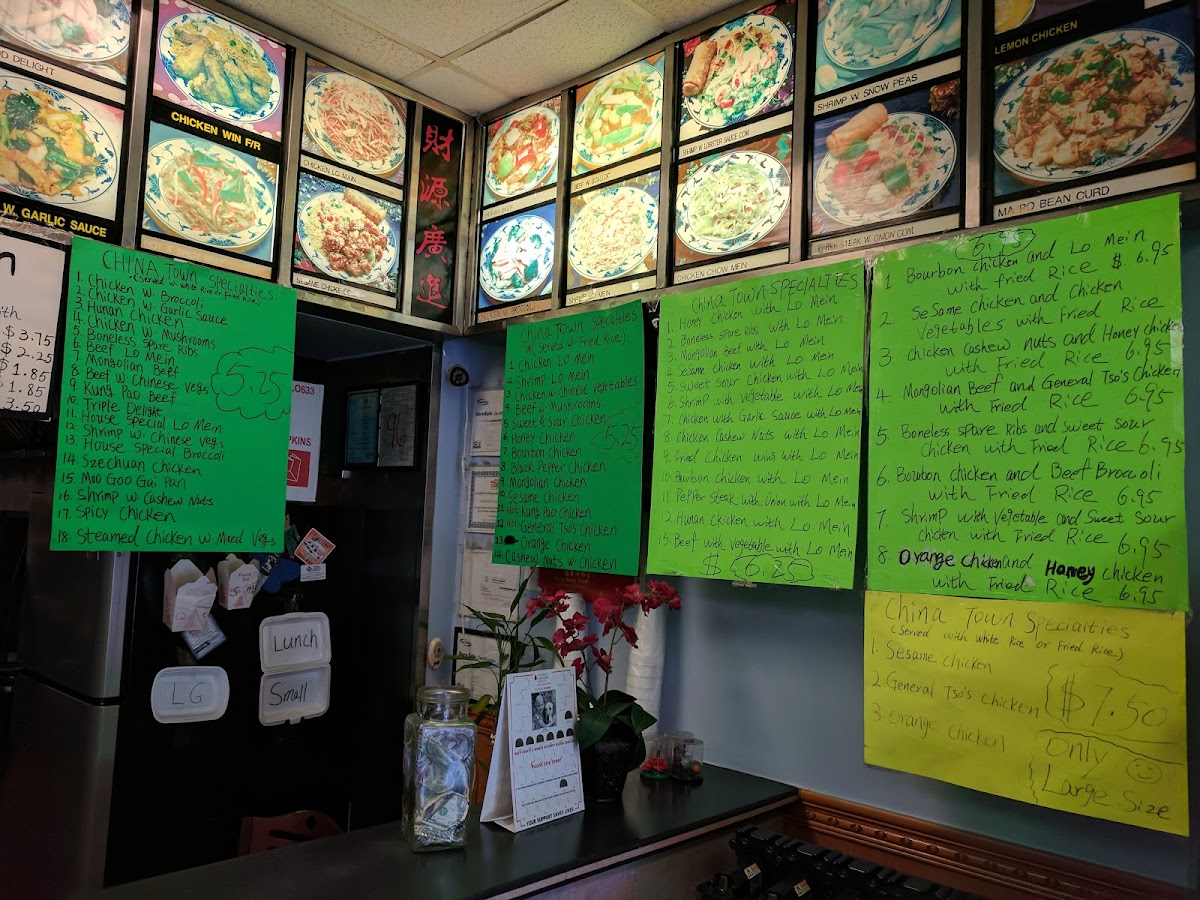 D DELIGHT
W. GARLIC SAUCE
CHICKEN WIN F/R
CHICKEN LO MAIN
SESAME CHICKEN
財源廣進
SHRIMP LO MEIN
SHRIMP W LOBSTER SAUCE COM
CHICKEN CHOW MEIN
SHRIMP W. SNOW PEAS
STEAK W. ONION COM
LEMON CHICKEN
MA PO BEAN CURD
$3.75
$2.25
$1.85
$1.85
3.50
CHINA Town Specialties
(Served w. white Rice or Fried Rice)
1. Chicken w. Broccoli
2. Chicken w. Garlic Sauce
3. Hunan Chicken
4. Chicken w. Mushrooms
5. Boneless Spare Ribs
6. Beef Lo Mein
7. Mongolian Beef
8. Beef w. Chinese Vegs
9. Kung Pao Beef
10. Triple Delight
11. House Special Lo Mein
12. Shrimp w. Chinese Vegs
13. House Special Broccoli
14. Szechuan Chicken
15. Moo Goo Gai Pan
16. Shrimp w Cashew Nuts
17. Spicy Chicken
18. Steamed Chicken w Mixed Vegs
5.25
China Town Specialties
(Served w. Fried Rice)
1. Chicken Lo Mein
2. Shrimp Lo Mein
3. Chicken w. Chinese Vegetables
4. Beef w. Mushrooms
5. Sweet & Sour Chicken
6. Honey Chicken
7. Bourbon Chicken
8. Black Pepper Chicken
9. Mongolian Chicken
10. Sesame Chicken
11. Hot Kung Pao Chicken
12. Hot General Tso's Chicken
13. Orange Chicken
14. Cashew Nuts w. Chicken
5.25
China TOWN SPECIALTIES
1. Honey Chicken with Lo Mein
2. Boneless Spare Ribs with Lo Mein
3. Mongolian Beef with Lo Mein
4. Sesame Chicken with Lo Mein
5. Sweet Sour Chicken with Lo Mein
6. Shrimp with Vegetable with Lo Mein
7. Chicken with Garlic Sauce with Lo Mein
8. Chicken Cashew Nuts with Lo Mein
9. Fried Chicken Wins with Lo Mein
10. Bourbon Chicken with Lo Mein
11. Pepper Steak with Onion with Lo Mein
12. Hunan Chicken with Lo Mein
13. Beef with Vegetable with Lo Mein
$ 6.25
6.95
1. Bourbon Chicken and Lo Mein
with Fried Rice $ 6.95
2. SeSame chicken and Chicken
Vegetables with Fried Rice 6.95
3. chicken Cashew nuts and Honey chicken
with Fried Rice 6.95
4. Mongolian Beef and General Tso's Chicken
with Fried Rice 6.95
5. Boneless spare Ribs and sweet sour
Chicken with Fried Rice 6.95
6. Bourbon chicken and Beef Broccoli
with Fried Rice 6.95
7. Shrimp with Vegetable and Sweet sour
chicken with Fried Rice 6.95
8. Orange Chicken and Honey chicken
with Fried Rice 6.95
China Town Specialties
(Served with white Rice or Fried Rice.)
1. Sesame chicken
2. General Tso's chicken
3. orange Chicken
$7.50
only
Large Size
Lunch
LG
Small
YOUR SUPPORT SAVES LIVES